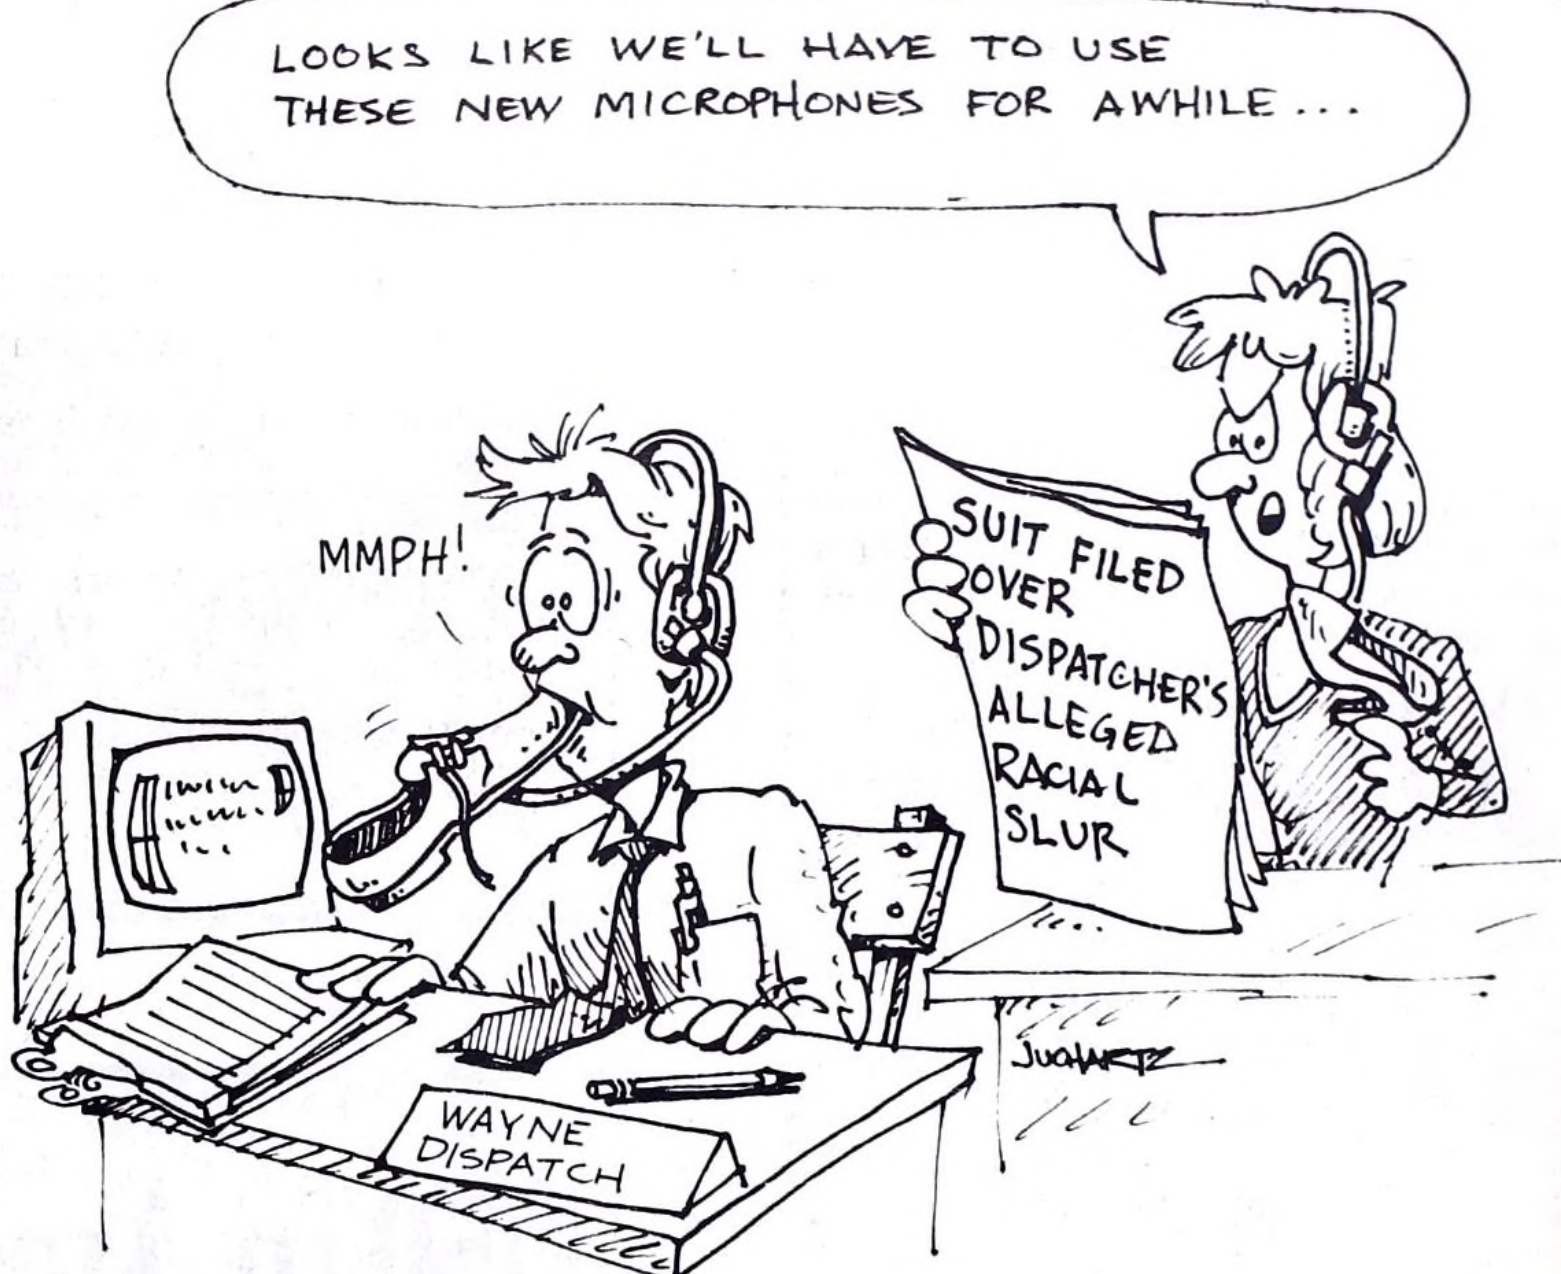 LOOKS LIKE WE'LL HAVE TO USE
THESE NEW MICROPHONES FOR AWHILE...
MMPH!
SUIT FILED
OVER
DISPATCHER'S
ALLEGED
RACIAL
SLUR
JUCHARTZ
WAYNE
DISPATCH